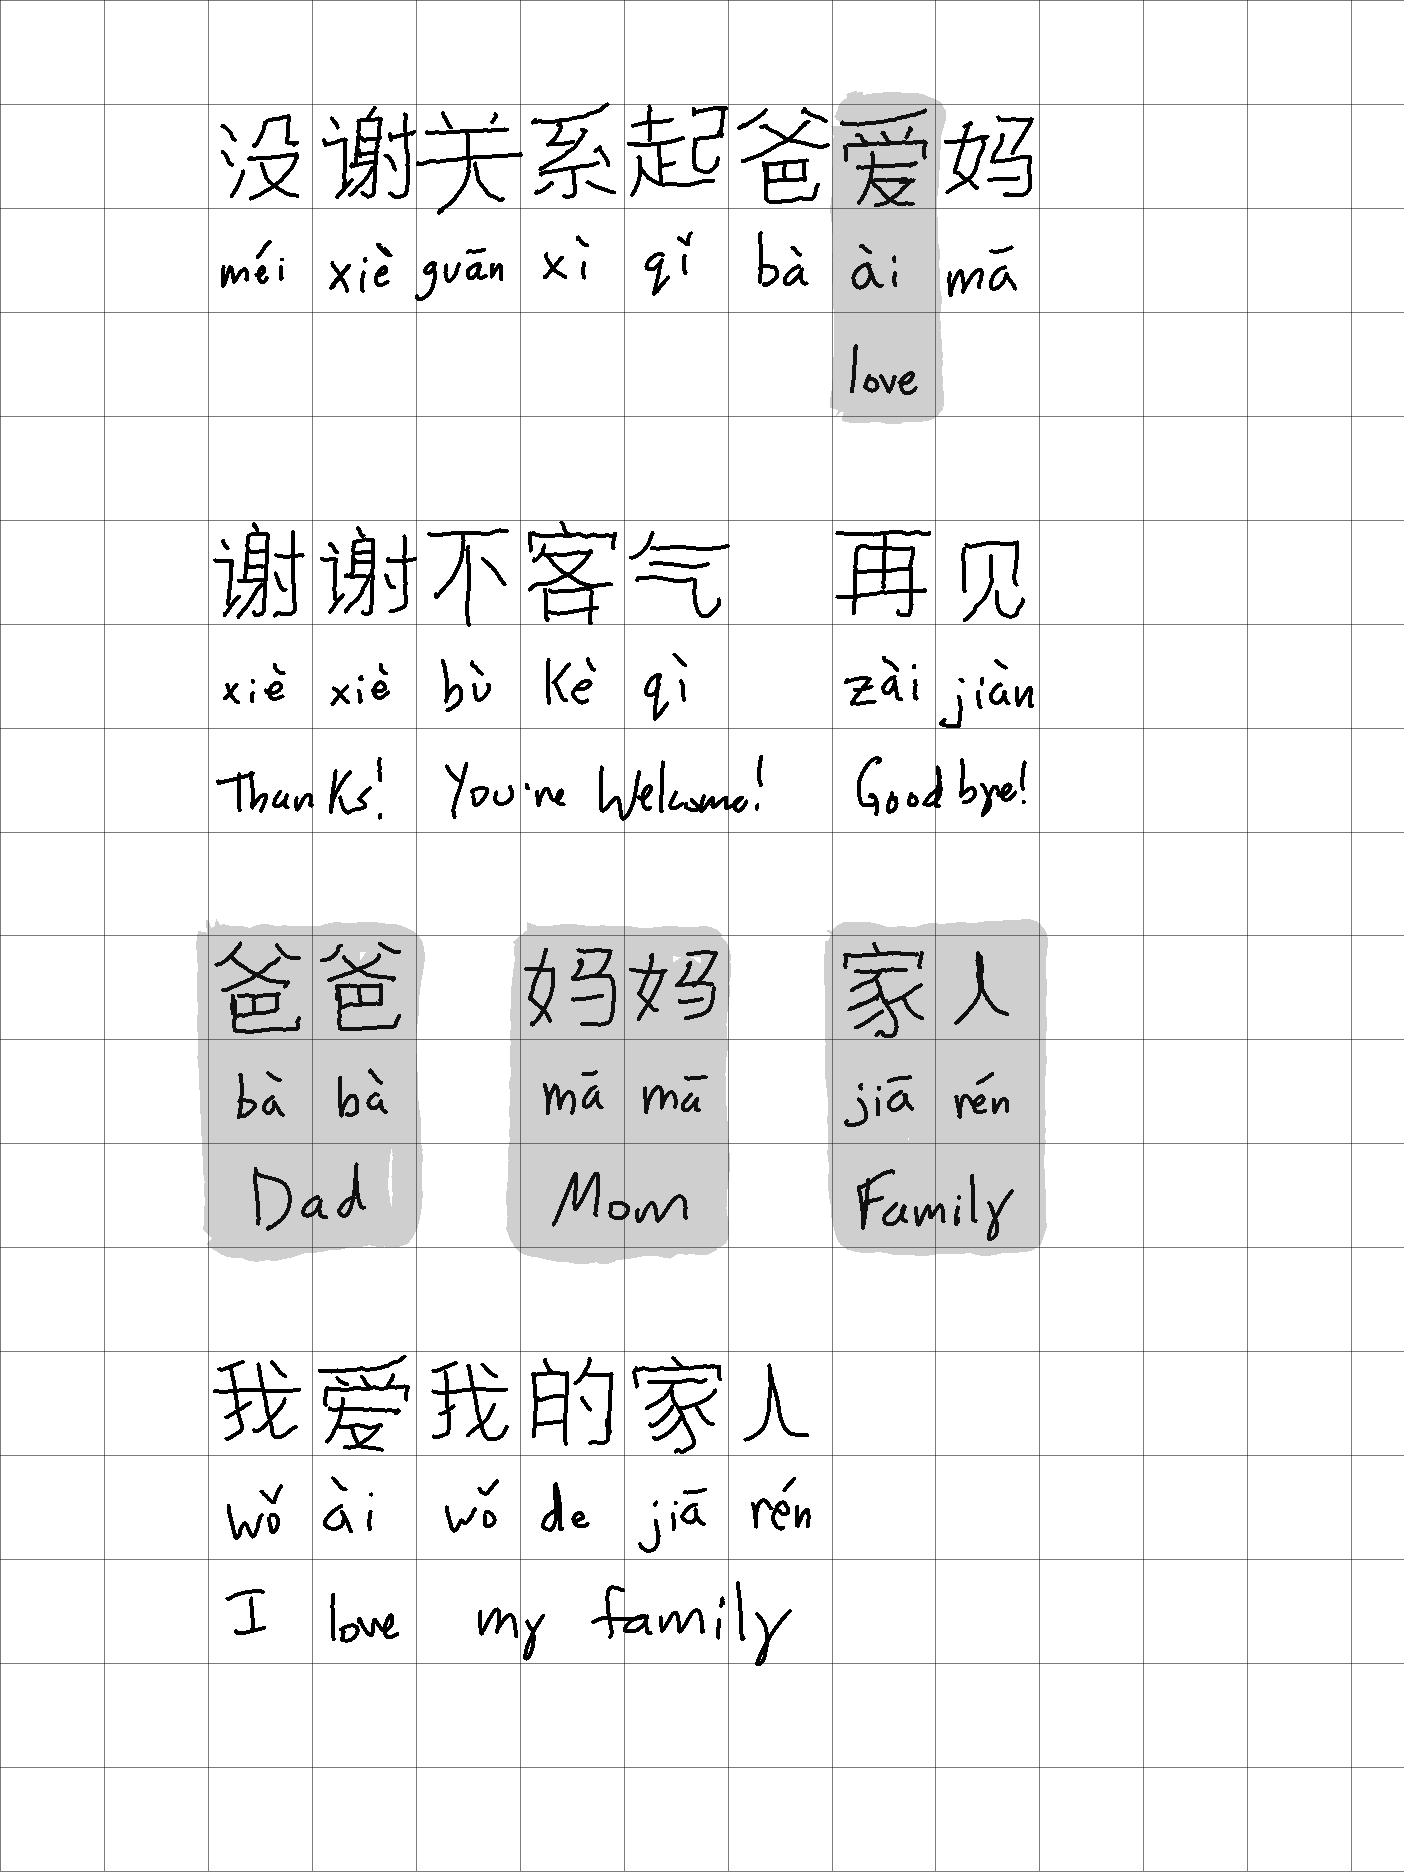 没谢关系起爸爱妈
méi xiè guān xì qǐ bà ài mā
love
谢谢不客气 再见
xiè xiè bù kè qì zài jiàn
Thanks! You're Welcome! Goodbye!
爸爸 妈妈 家人
bà bà mā mā jiā rén
Dad Mom Family
我爱我的家人
wǒ ài wǒ de jiā rén
I love my family